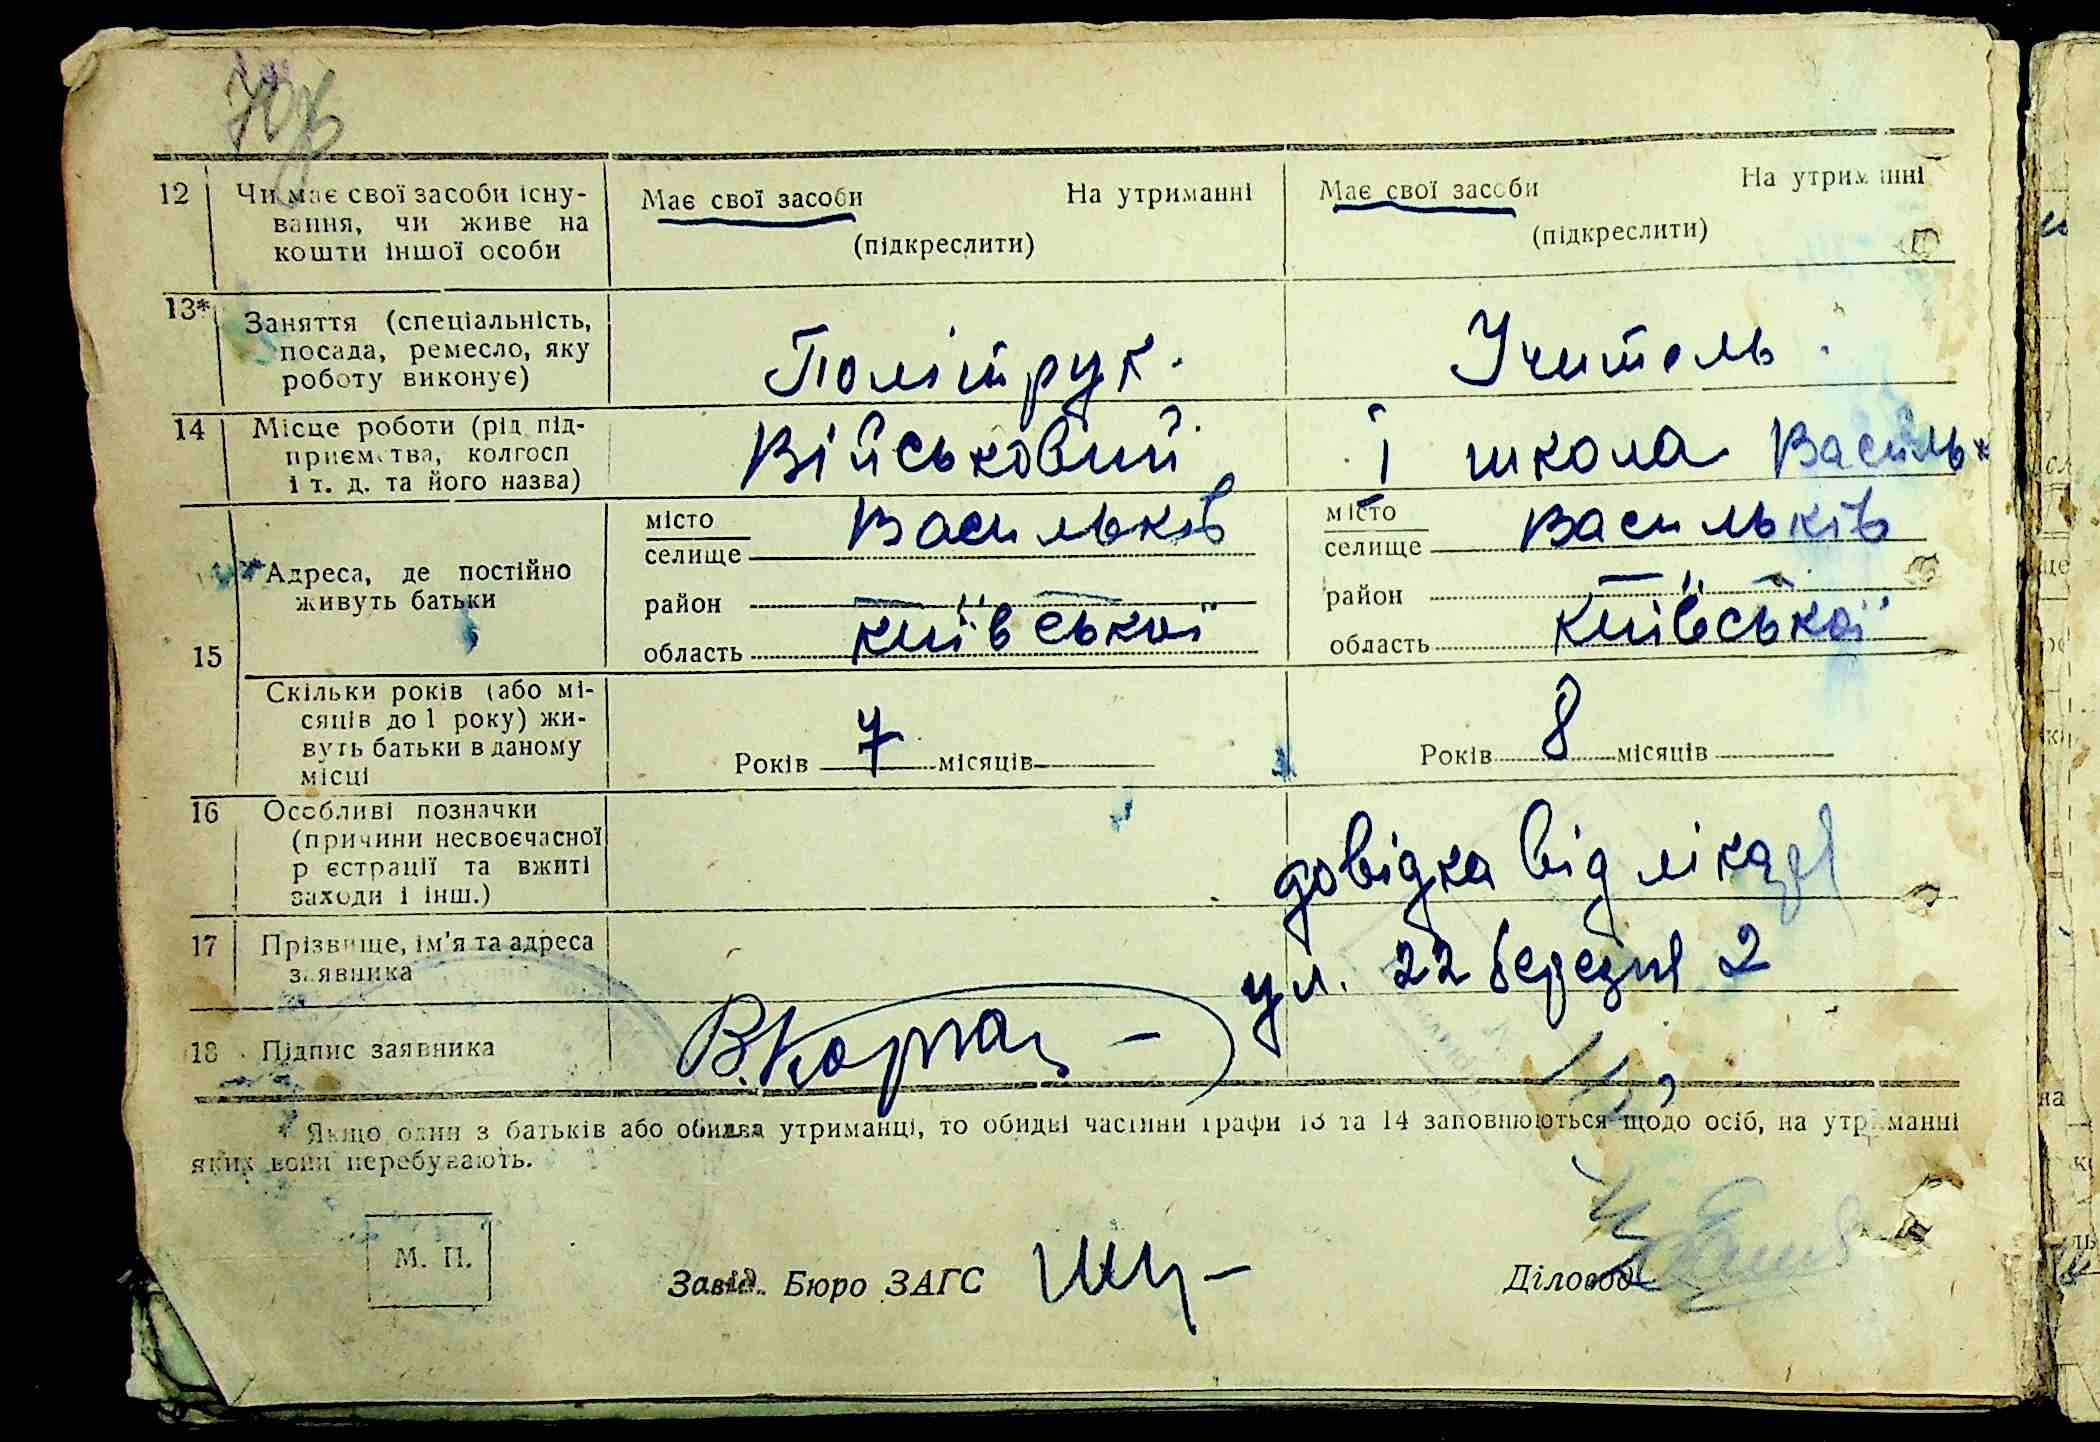 12 Чи має свої засоби існу-
вання, чи живе на
кошти іншої особи
Має свої засоби На утриманні
(підкреслити)
Має свої засоби На утриманні
(підкреслити)
13* Заняття (спеціальність,
посада, ремесло, яку
роботу виконує)
Політрук.
Учитель.
14 Місце роботи (рід під-
приємства, колгосп
і т. д. та його назва)
Військовий
І школа Васильк
15 Адреса, де постійно
живуть батьки
місто Васильків
селище
район
область Київської
місто Васильків
селище
район
область Київської
Скільки років (або мі-
сяців до 1 року) жи-
вуть батьки в даному
місці
Років 7 місяців
Років 8 місяців
16 Особливі позначки
(причини несвоєчасної
реєстрації та вжиті
заходи і інш.)
довідка від лікаря
17 Прізвище, ім'я та адреса
заявника
ул. 22 березня 2
18 Підпис заявника
Якщо один з батьків або обидва утриманці, то обидві частини графи 13 та 14 заповнюються щодо осіб, на утриманні
яких вони перебувають.
М. П.
Завід. Бюро ЗАГС
Діловод